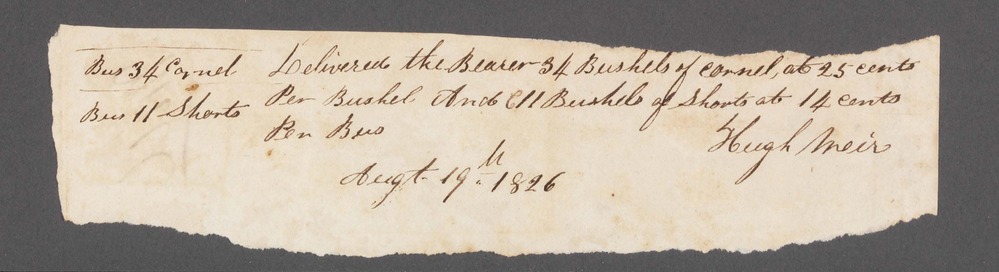 Bus 34 Cornel
Bus 11 Shorts
Delivered the Bearer 34 Bushels of Cornel, at 25 cents
Per Bushel And 11 Bushels of Shorts at 14 cents
Per Bus
Hugh Meir
Augt 19th 1826